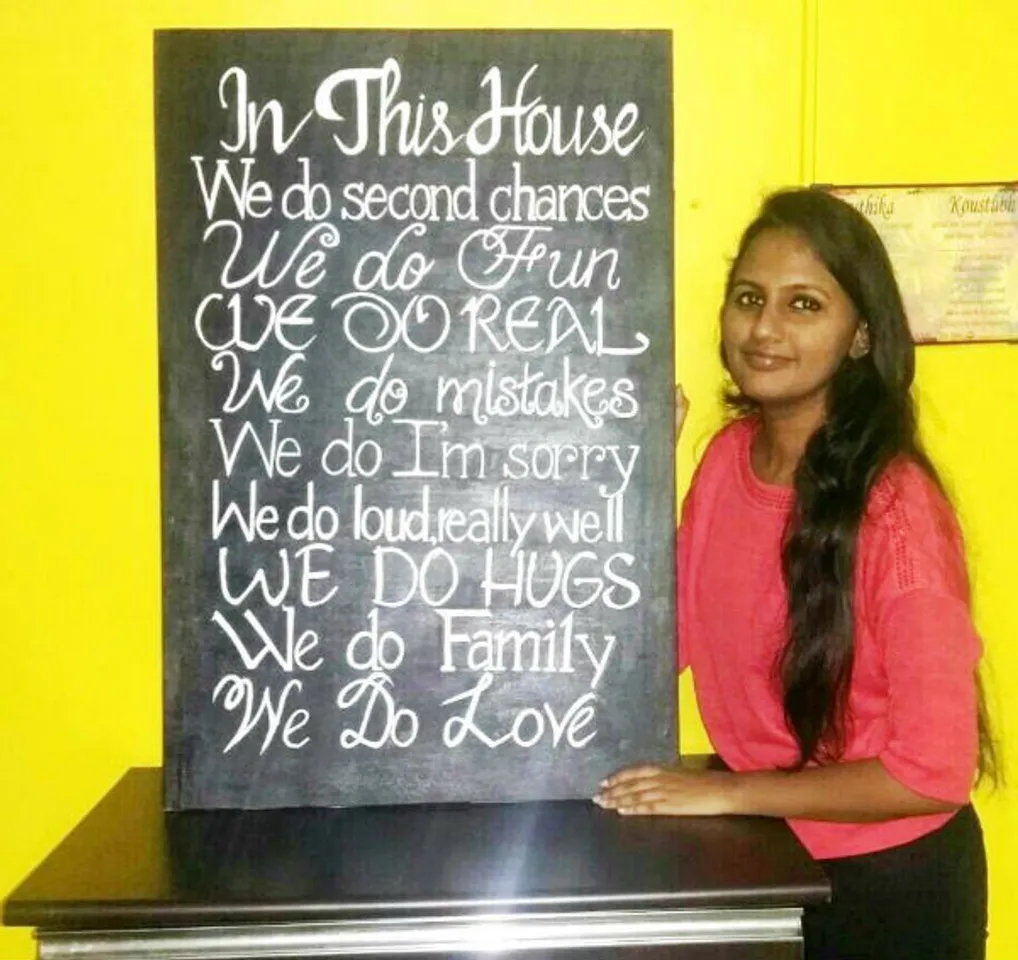 In This House
We do second chances
We do Fun
WE DO REAL
We do mistakes
We do I'm sorry
We do loud, really well
WE DO HUGS
We do Family
We Do Love
Koustubh